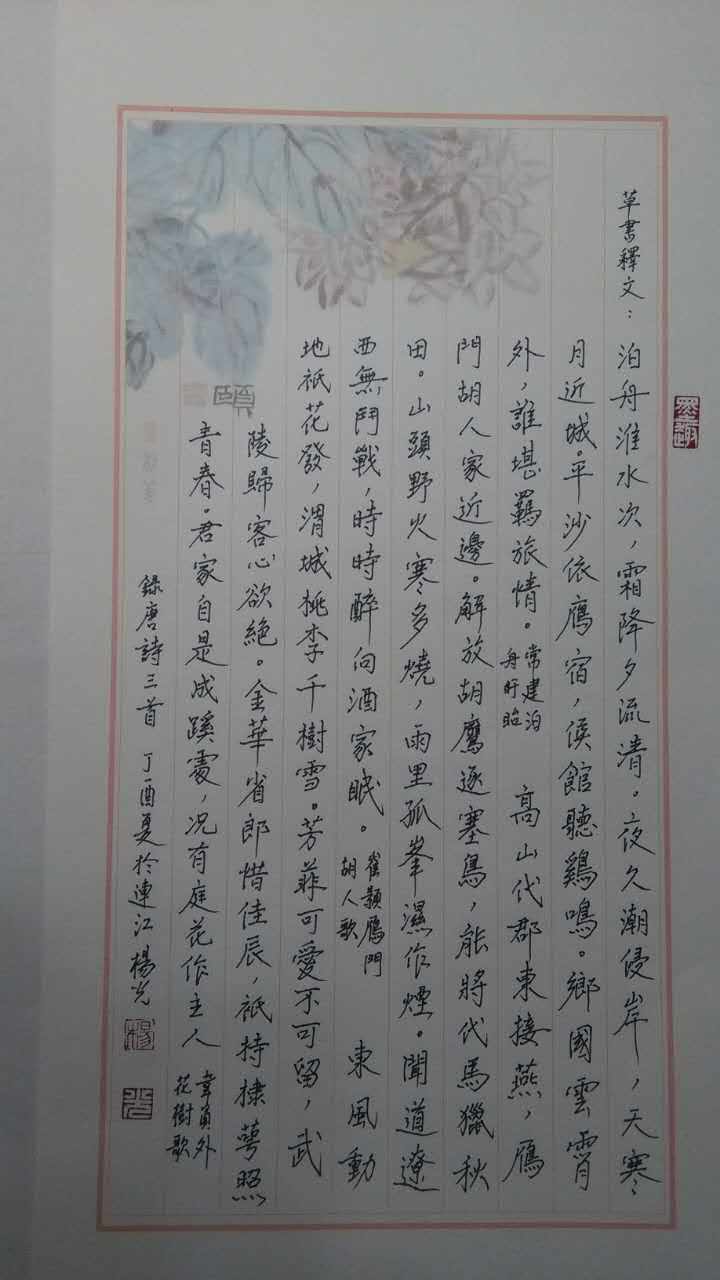 草書釋文：泊舟淮水次，霜降夕流清。夜久潮侵岸，天寒
月近城。平沙依鴈宿，侯館聽鷄鳴。鄉國雲霄
外，誰堪羈旅情。常建泊舟盱眙 高山代郡東接燕，鴈
門胡人家近邊。解放胡鷹逐塞鳥，能將代馬獵秋
田。山頭野火寒多燒，雨里孤峯濕作煙。聞道遼
西無鬥戰，時時醉向酒家眠。崔顥鴈門胡人歌 東風動
地祇花發，渭城桃李千樹雪。芳菲可愛不可留，武
陵歸客心欲絕。金華省郎惜佳辰，祇持棣萼照
青春。君家自是成蹊處，况有庭花作主人 韋員外花樹歌
錄唐詩三首 丁酉夏於連江楊光
墨趣
頤
楊
光